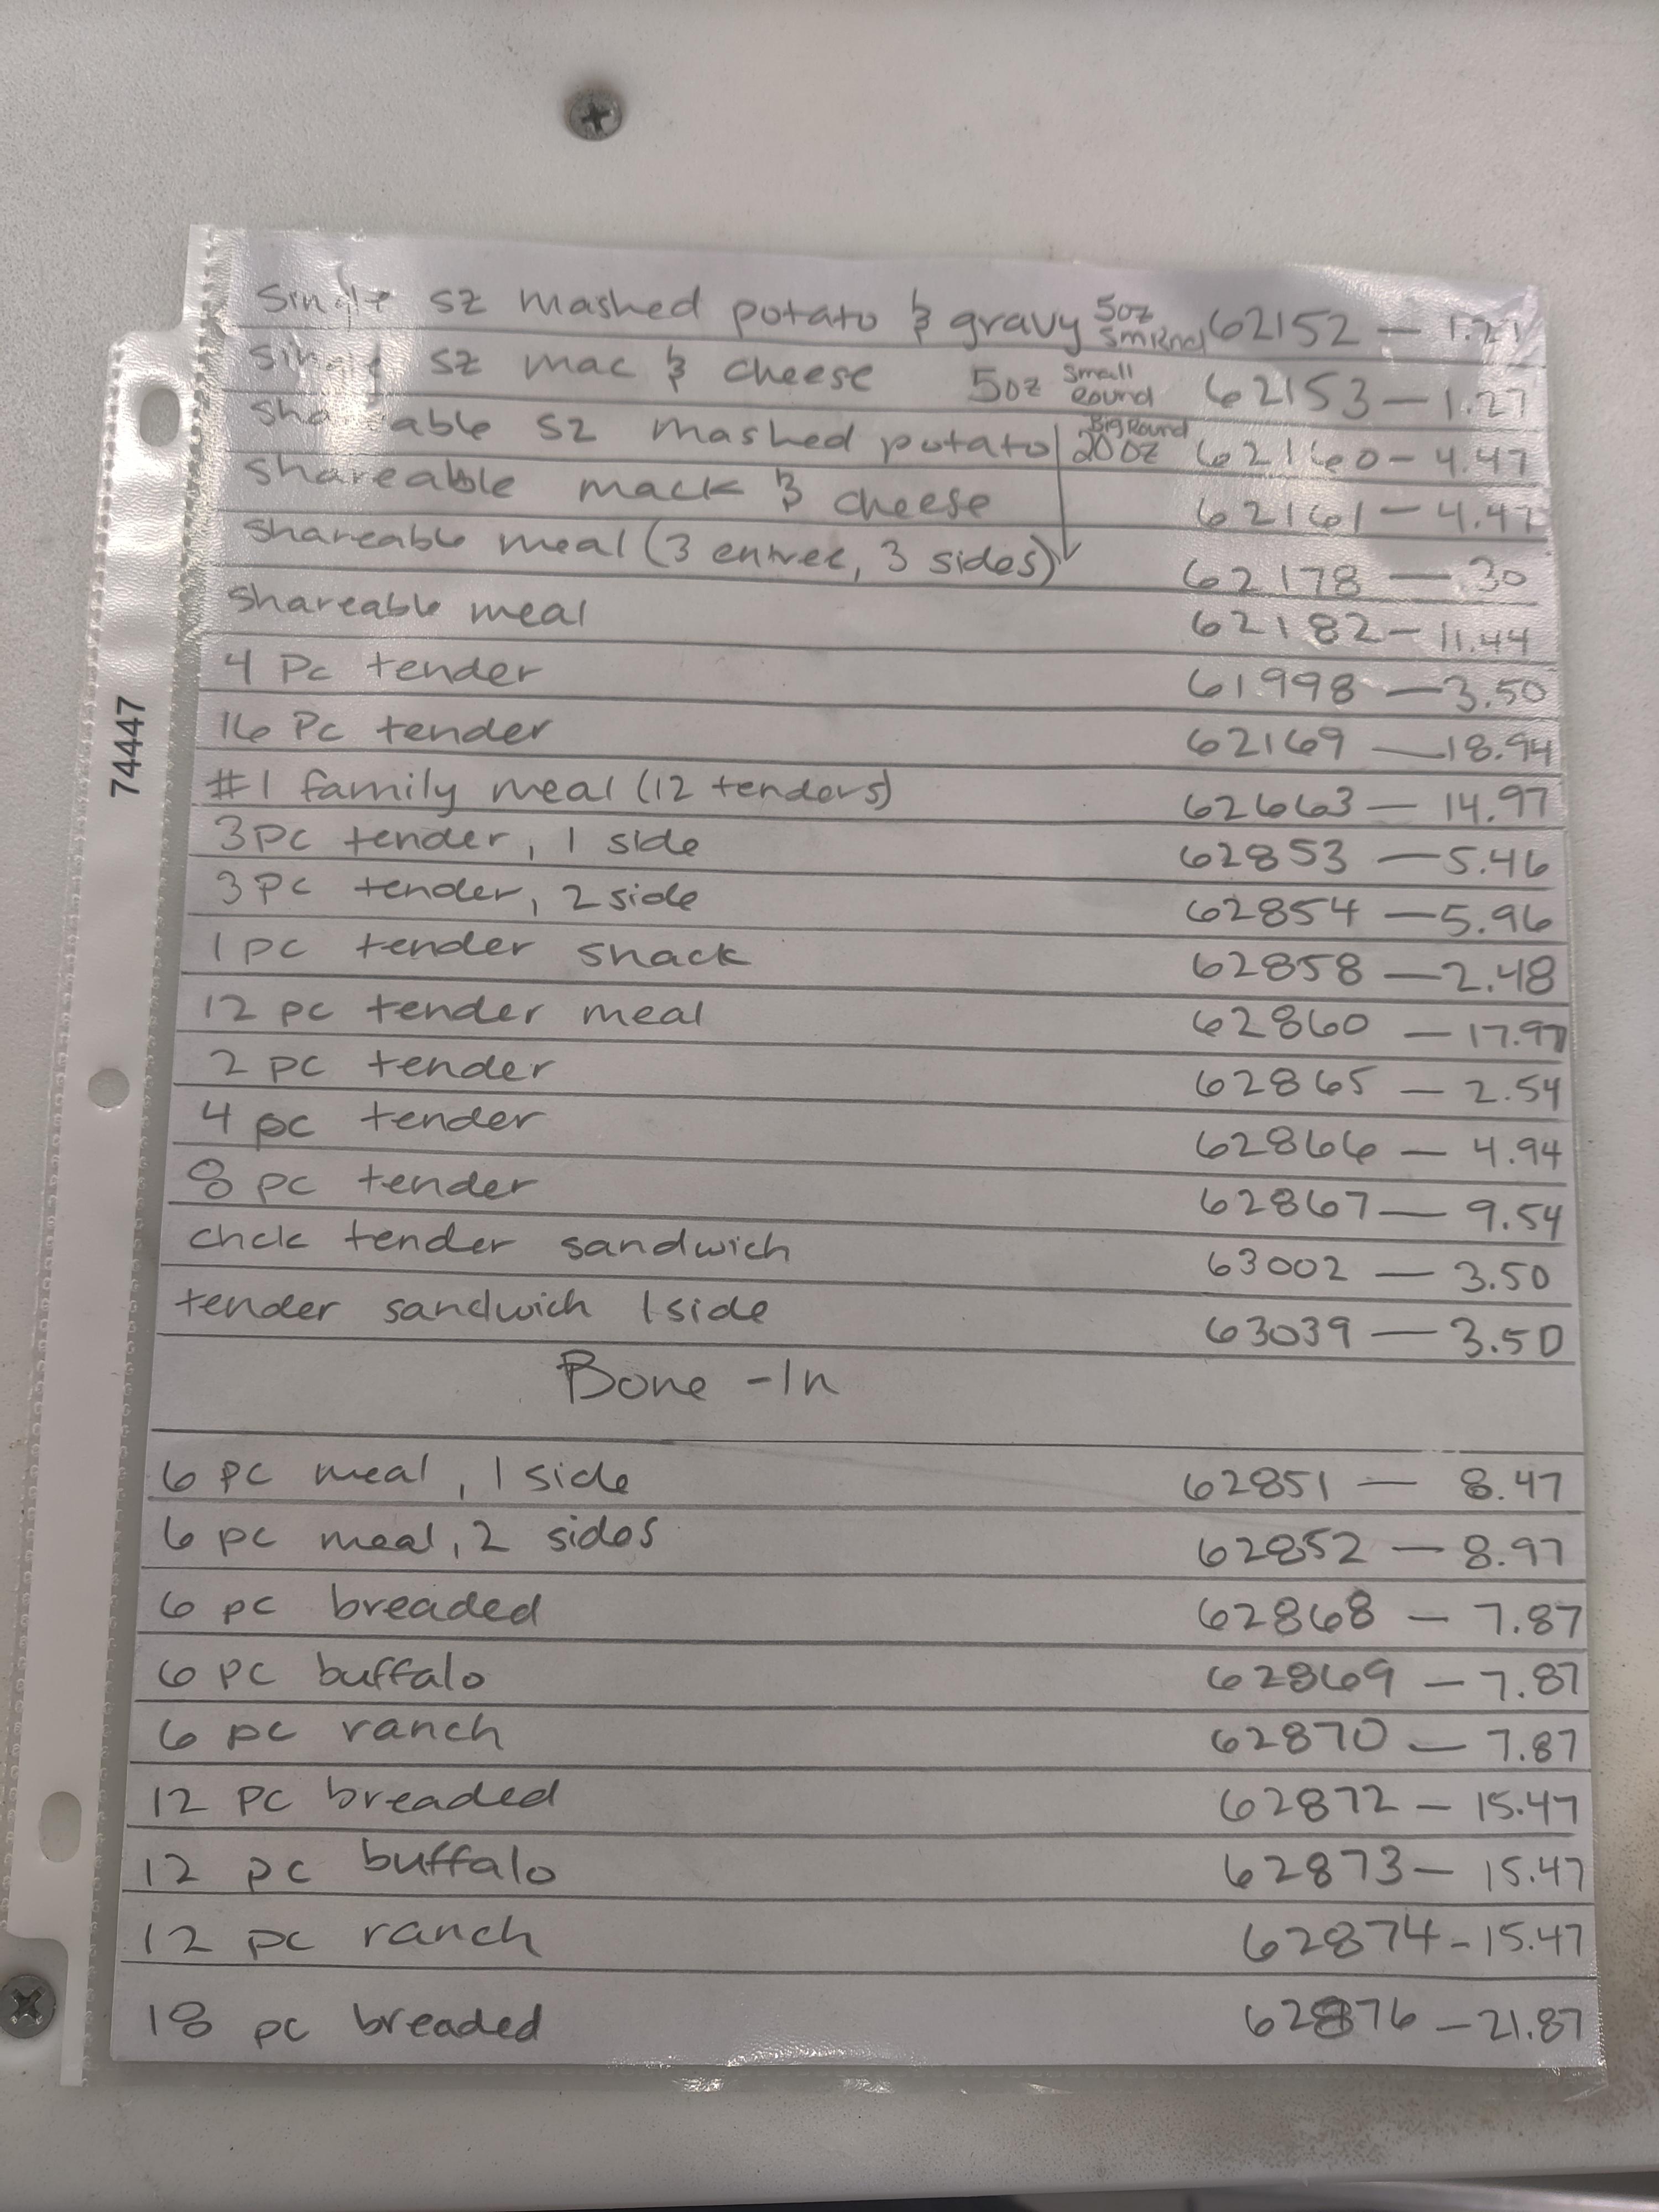 Single sz mashed potato & gravy 5oz Sm Rnd 62152 — 1.27
Single sz mac & cheese 5oz Small Round 62153 — 1.27
shareable sz mashed potato Big Round 20oz 62160 - 4.47
shareable mack & cheese 62161 - 4.47
shareable meal (3 entree, 3 sides) 62178 — 30
shareable meal 62182 - 11.44
4 Pc tender 61998 — 3.50
16 Pc tender 62169 — 18.94
#1 family meal (12 tenders) 62663 — 14.97
3 pc tender, 1 side 62853 — 5.46
3 pc tender, 2 side 62854 — 5.96
1 pc tender snack 62858 — 2.48
12 pc tender meal 62860 — 17.97
2 pc tender 62865 — 2.54
4 pc tender 62866 — 4.94
8 pc tender 62867 — 9.54
chck tender sandwich 63002 — 3.50
tender sandwich 1 side 63039 — 3.50
Bone-In
6 pc meal, 1 side 62851 — 8.47
6 pc meal, 2 sides 62852 — 8.97
6 pc breaded 62868 — 7.87
6 pc buffalo 62869 — 7.87
6 pc ranch 62870 — 7.87
12 pc breaded 62872 — 15.47
12 pc buffalo 62873 — 15.47
12 pc ranch 62874 - 15.47
18 pc breaded 62876 — 21.87
74447